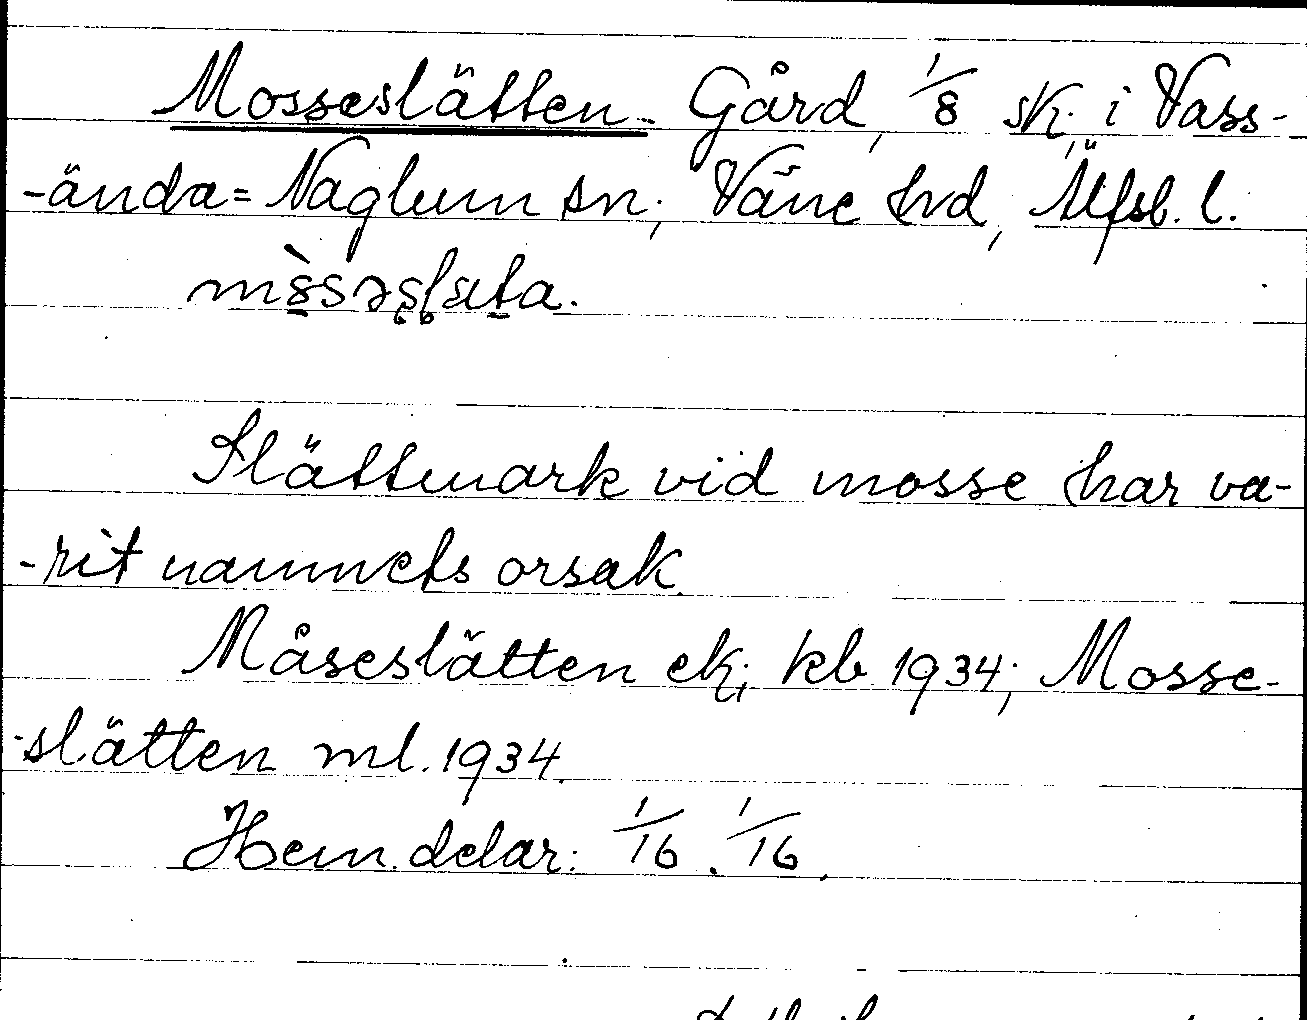 Mosseslätten. Gård, 1/8 sk. i Vass-
-ända=Naglum sn; Väne hd, Älfsb. l.
Slättmark vid mosse har va-
-rit namnets orsak.
Måseslätten ek; kb 1934; Mosse-
-slätten ml. 1934.
Hem. delar: 1/16. 1/16.